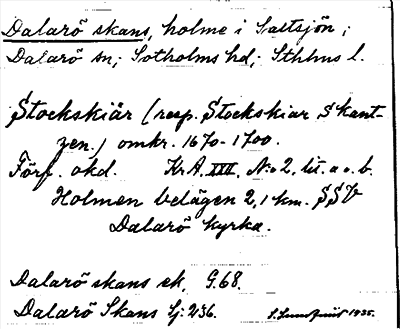 Dalarö skans, holme i Saltsjön;
Dalarö sn; Sotholms hd; Sthlms l.
Stockskiär (resp. Stockskiar Skant-
zen.) omkr. 1670-1700.
Förf. okd. Kr A. XIII, No 2, lit. a o. b.
Holmen belägen 2,1 km. SSV
Dalarö kyrka.
Dalarö skans ek. G.68.
Dalarö Skans Sj: 236. 1935.